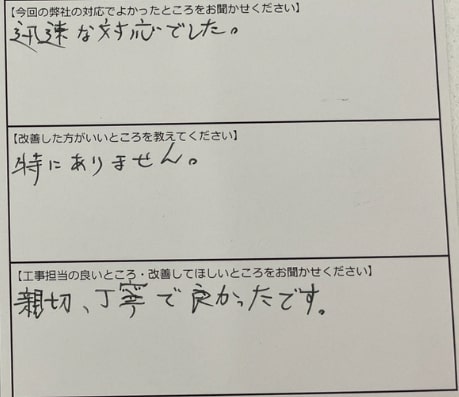 【今回の弊社の対応でよかったところをお聞かせください】
迅速な対応でした。
【改善した方がいいところを教えてください】
特にありません。
【工事担当の良いところ・改善してほしいところをお聞かせください】
親切、丁寧で良かったです。